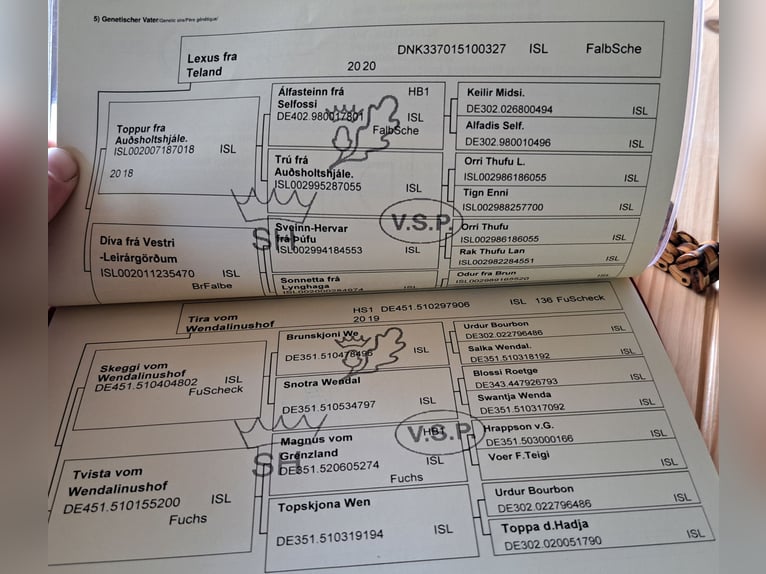 5) Genetischer Vater/Genetic sire/Père génétique/
Lexus fra
Teland
DNK337015100327 ISL FalbSche
2020
Toppur fra
Auðsholtshjále.
ISL002007187018 ISL
2018
Álfasteinn frá HB1
Selfossi
DE402.980017801
FalbSche
Trú frá
Auðsholtshjále.
ISL002995287055 ISL
Keilir Midsi.
DE302.026800494 ISL
Alfadis Self.
DE302.980010496 ISL
Orri Thufu L.
ISL002986186055 ISL
Tign Enni
ISL002988257700 ISL
Díva frá Vestri
-Leirárgörðum
ISL002011235470 ISL
BrFalbe
Sveinn-Hervar
frá Þúfu
ISL002994184553 ISL
Sonnetta frá
Lynghaga
SH
V.S.P.
Orri Thufu
ISL002986186055 ISL
Rak Thufu Lan
ISL002982284551 ISL
Odur fra Brun
ISL
Tira vom
Wendalinushof
HS1 DE451.510297906 ISL 136 FuScheck
2019
Skeggi vom
Wendalinushof
DE451.510404802 ISL
FuScheck
Brunskjoni We
DE351.510478495 ISL
Snotra Wendal
DE351.510534797 ISL
Urdur Bourbon
DE302.022796486 ISL
Salka Wendal.
DE351.510318192 ISL
Blossi Roetge
DE343.447926793 ISL
Swantja Wenda
DE351.510317092 ISL
Tvista vom
Wendalinushof
DE451.510155200 ISL
Fuchs
Magnus vom HB1
Grenzland
DE351.520605274 ISL
Fuchs
Topskjona Wen
DE351.510319194 ISL
SH
V.S.P.
Hrappson v.G.
DE351.503000166 ISL
Voer F.Teigi
ISL
Urdur Bourbon
DE302.022796486 ISL
Toppa d.Hadja
DE302.020051790 ISL